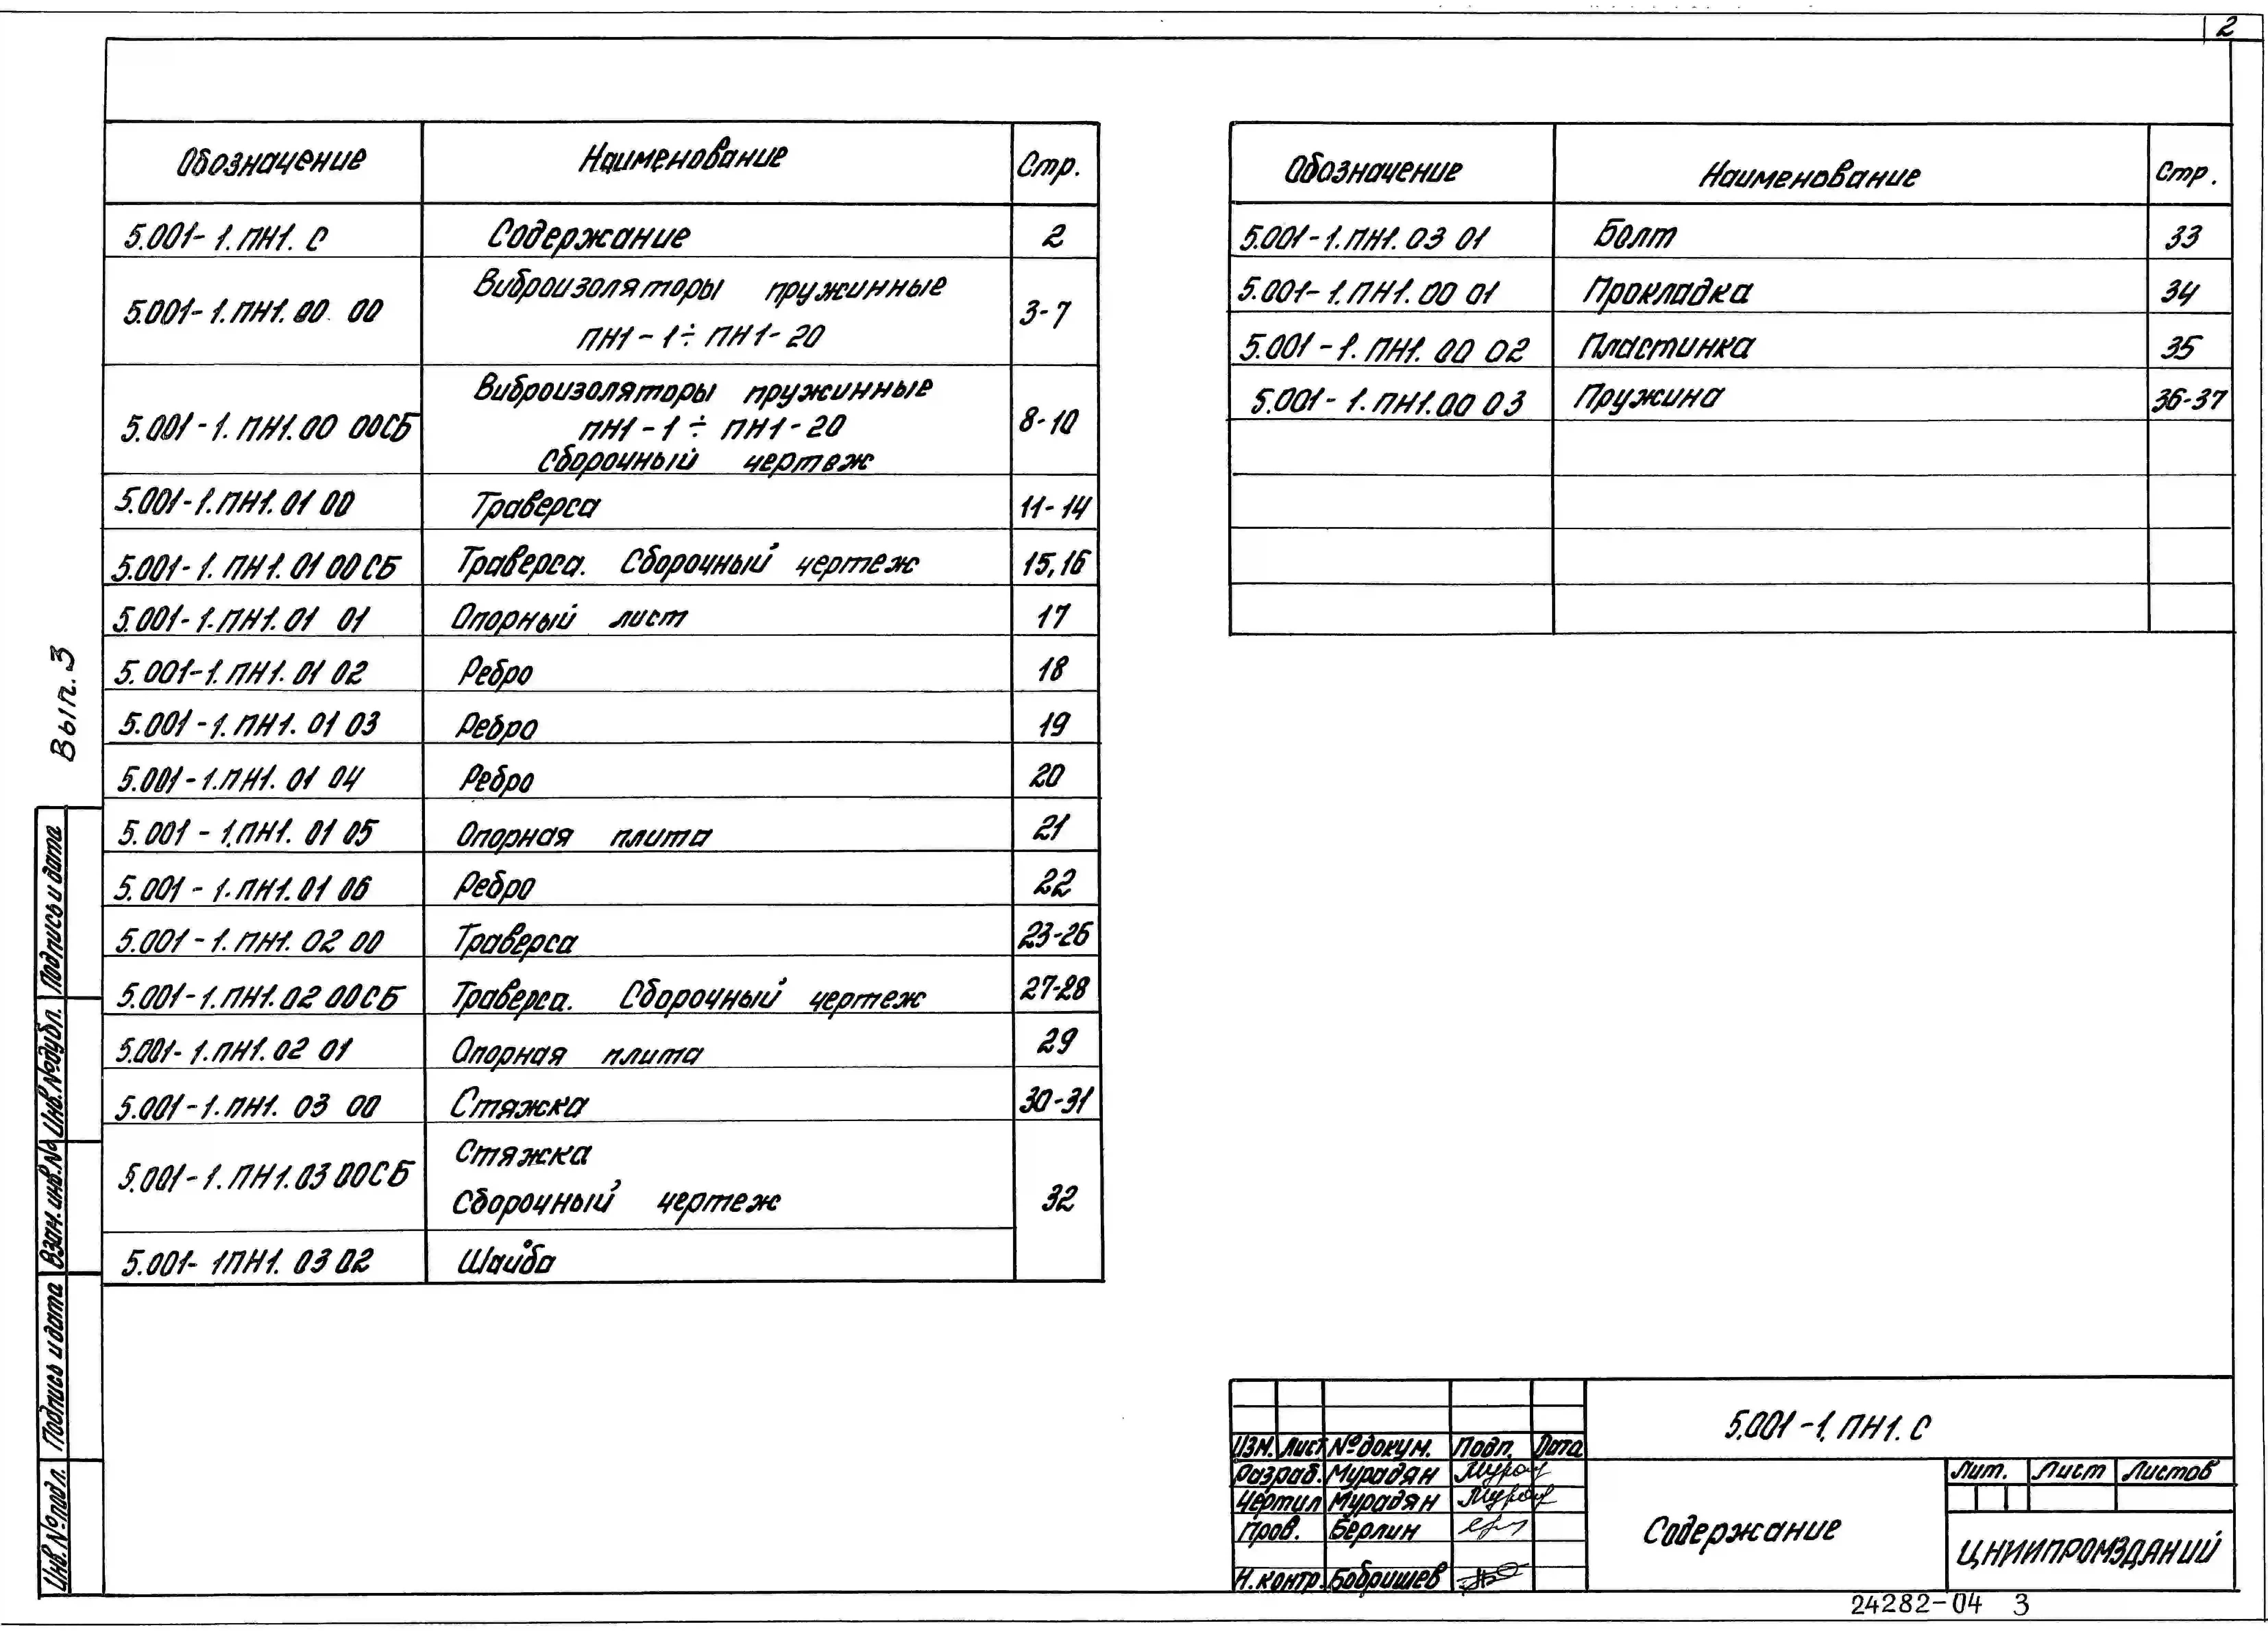 2
Обозначение Наименование Стр.
5.001-1.ПН1. С Содержание 2
5.001-1.ПН1.00 00 Виброизоляторы пружинные ПН1-1÷ПН1-20 3-7
5.001-1.ПН1.00 00СБ Виброизоляторы пружинные ПН1-1÷ПН1-20 Сборочный чертеж 8-10
5.001-1.ПН1.01 00 Траверса 11-14
5.001-1.ПН1.01 00СБ Траверса. Сборочный чертеж 15,16
5.001-1.ПН1.01 01 Опорный лист 17
5.001-1.ПН1.01 02 Ребро 18
5.001-1.ПН1.01 03 Ребро 19
5.001-1.ПН1.01 04 Ребро 20
5.001-1.ПН1.01 05 Опорная плита 21
5.001-1.ПН1.01 06 Ребро 22
5.001-1.ПН1.02 00 Траверса 23-26
5.001-1.ПН1.02 00СБ Траверса. Сборочный чертеж 27-28
5.001-1.ПН1.02 01 Опорная плита 29
5.001-1.ПН1.03 00 Стяжка 30-31
5.001-1.ПН1.03 00СБ Стяжка Сборочный чертеж 32
5.001-1ПН1.03 02 Шайба
Обозначение Наименование Стр.
5.001-1.ПН1.03 01 Болт 33
5.001-1.ПН1.00 01 Прокладка 34
5.001-1.ПН1.00 02 Пластинка 35
5.001-1.ПН1.00 03 Пружина 36-37
Вып.3
Подпись и дата
Инв.№дубл.
Взам.инв.№
Подпись и дата
Инв.№подл.
Изм. Лист №докум. Подп. Дата
Разраб. Мурадян Мурад
Чертил Мурадян Мурад
Пров. Берлин
Н.контр. Бобришев
5.001-1.ПН1.С
Содержание
Лит. Лист Листов
ЦНИИПРОМЗДАНИЙ
24282-04 3